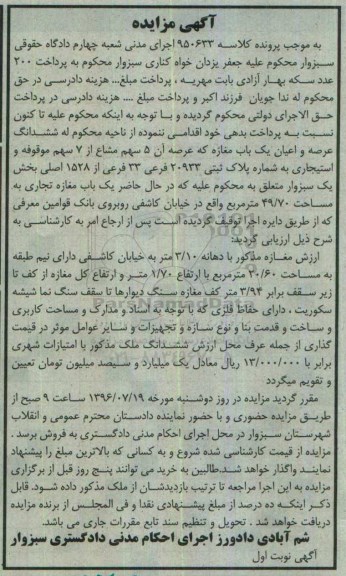 آگهی مزایده
به موجب پرونده کلاسه ۹۵۰۶۳۳ اجرای مدنی شعبه چهارم دادگاه حقوقی
سبزوار محکوم علیه جعفر یزدان خواه کناری سبزوار محکوم به پرداخت ۲۰۰
عدد سکه بهار آزادی بابت مهریه ، پرداخت مبلغ... هزینه دادرسی در حق
محکوم له ندا جویان فرزند اکبر و پرداخت مبلغ .... هزینه دادرسی در پرداخت
حق الاجرای دولتی محکوم گردیده و با توجه به اینکه محکوم علیه تا کنون
نسبت به پرداخت بدهی خود اقدامی ننموده از ناحیه محکوم له ششدانگ
عرصه و اعیان یک باب مغازه که عرصه آن ۵ سهم مشاع از ۷ سهم موقوفه و
استیجاری به شماره پلاک ثبتی ۲۰۹۳۳ فرعی ۳۳ فرعی از ۱۵۲۸ اصلی بخش
یک سبزوار متعلق به محکوم علیه که در حال حاضر یک باب مغازه تجاری به
مساحت ۴۹/۷۰ مترمربع واقع در خیابان کاشفی روبروی بانک قوامین معرفی
که از طریق دایره اجرا توقیف گردیده است پس از ارجاع امر به کارشناسی به
شرح ذیل ارزیابی گردید:
ارزش مغازه مذکور با دهانه ۳/۱۰ متر به خیابان کاشفی دارای نیم طبقه
به مساحت ۳۰/۶۰ مترمربع با ارتفاع ۱/۷۰ متر و ارتفاع کل مغازه از کف تا
زیر سقف برابر ۳/۹۴ متر کف مغازه سنگ دیوارها تا سقف سنگ نما شیشه
سکوریت ، دارای حفاظ فلزی که با توجه به اسناد و مدارک و مساحت کاربری
و ساخت و قدمت بنا و نوع سازه و تجهیزات و سایر عوامل موثر در قیمت
گذاری از جمله عرف محل ارزش ششدانگ ملک مذکور با امتیازات شهری
برابر با ۱۳/۰۰۰/۰۰۰ ریال معادل یک میلیارد و سیصد میلیون تومان تعیین
و تقویم میگردد
مقرر گردید مزایده در روز دوشنبه مورخه ۱۳۹۶/۰۷/۱۹ ساعت ۹ صبح از
طریق مزایده حضوری و با حضور نماینده دادستان محترم عمومی و انقلاب
شهرستان سبزوار در محل اجرای احکام مدنی دادگستری به فروش برسد .
مزایده از قیمت کارشناسی شده شروع و به کسانی که بالاترین مبلغ را پیشنهاد
نمایند واگذار خواهد شد.طالبین به خرید می توانند پنج روز قبل از برگزاری
مزایده به این اجرا مراجعه تا ترتیب بازدیدشان از ملک مذکور داده شود. قابل
ذکر اینکه ده درصد از مبلغ پیشنهادی نقدا و فی المجلس از برنده مزایده
دریافت خواهد شد . تحویل و تنظیم سند تابع مقررات جاری می باشد.
شم آبادی دادورز اجرای احکام مدنی دادگستری سبزوار
آگهی نوبت اول